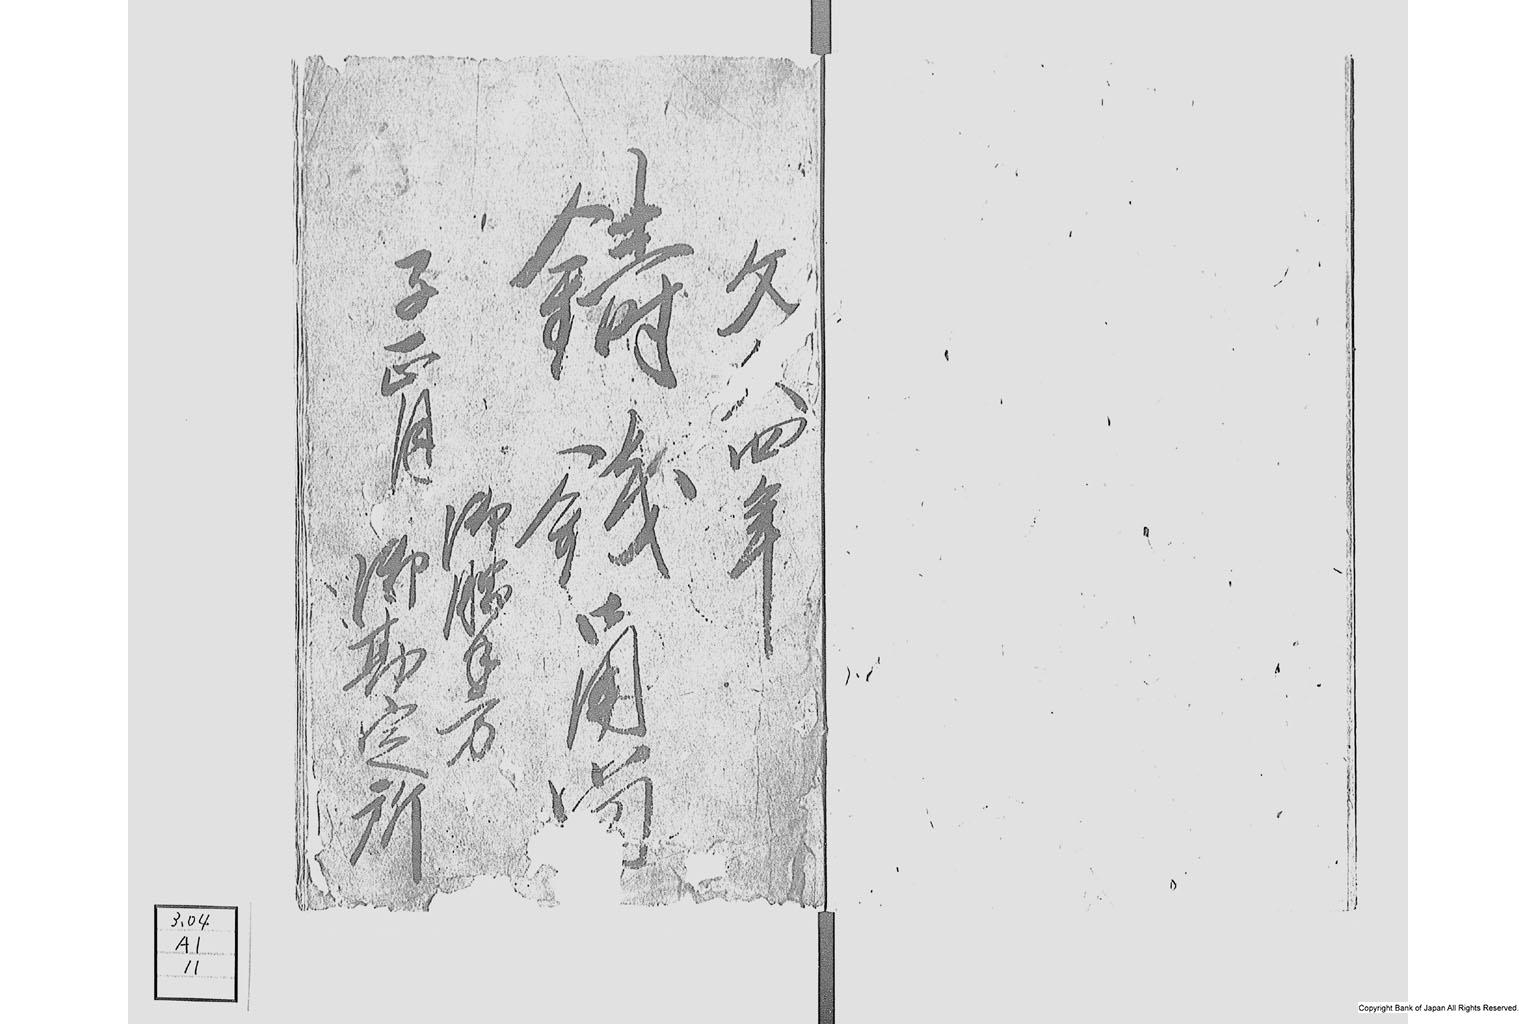 文久四年
鋳銭箇
子正月
御勝手方
御勘定所
3.04
A1
11
Copyright Bank of Japan All Rights Reserved.